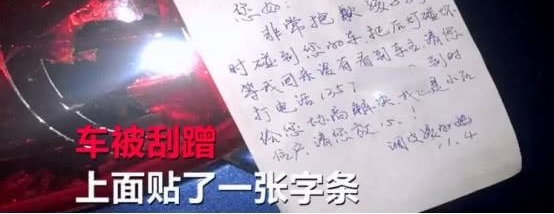 您好:
非常抱歉
时碰到您的车,把后灯碰
等我回来没有看到车主,请您
打电话1357        到时
给您协商解决,我也是小区
住户,请您放心!
11.4
车被刮蹭
上面贴了一张字条